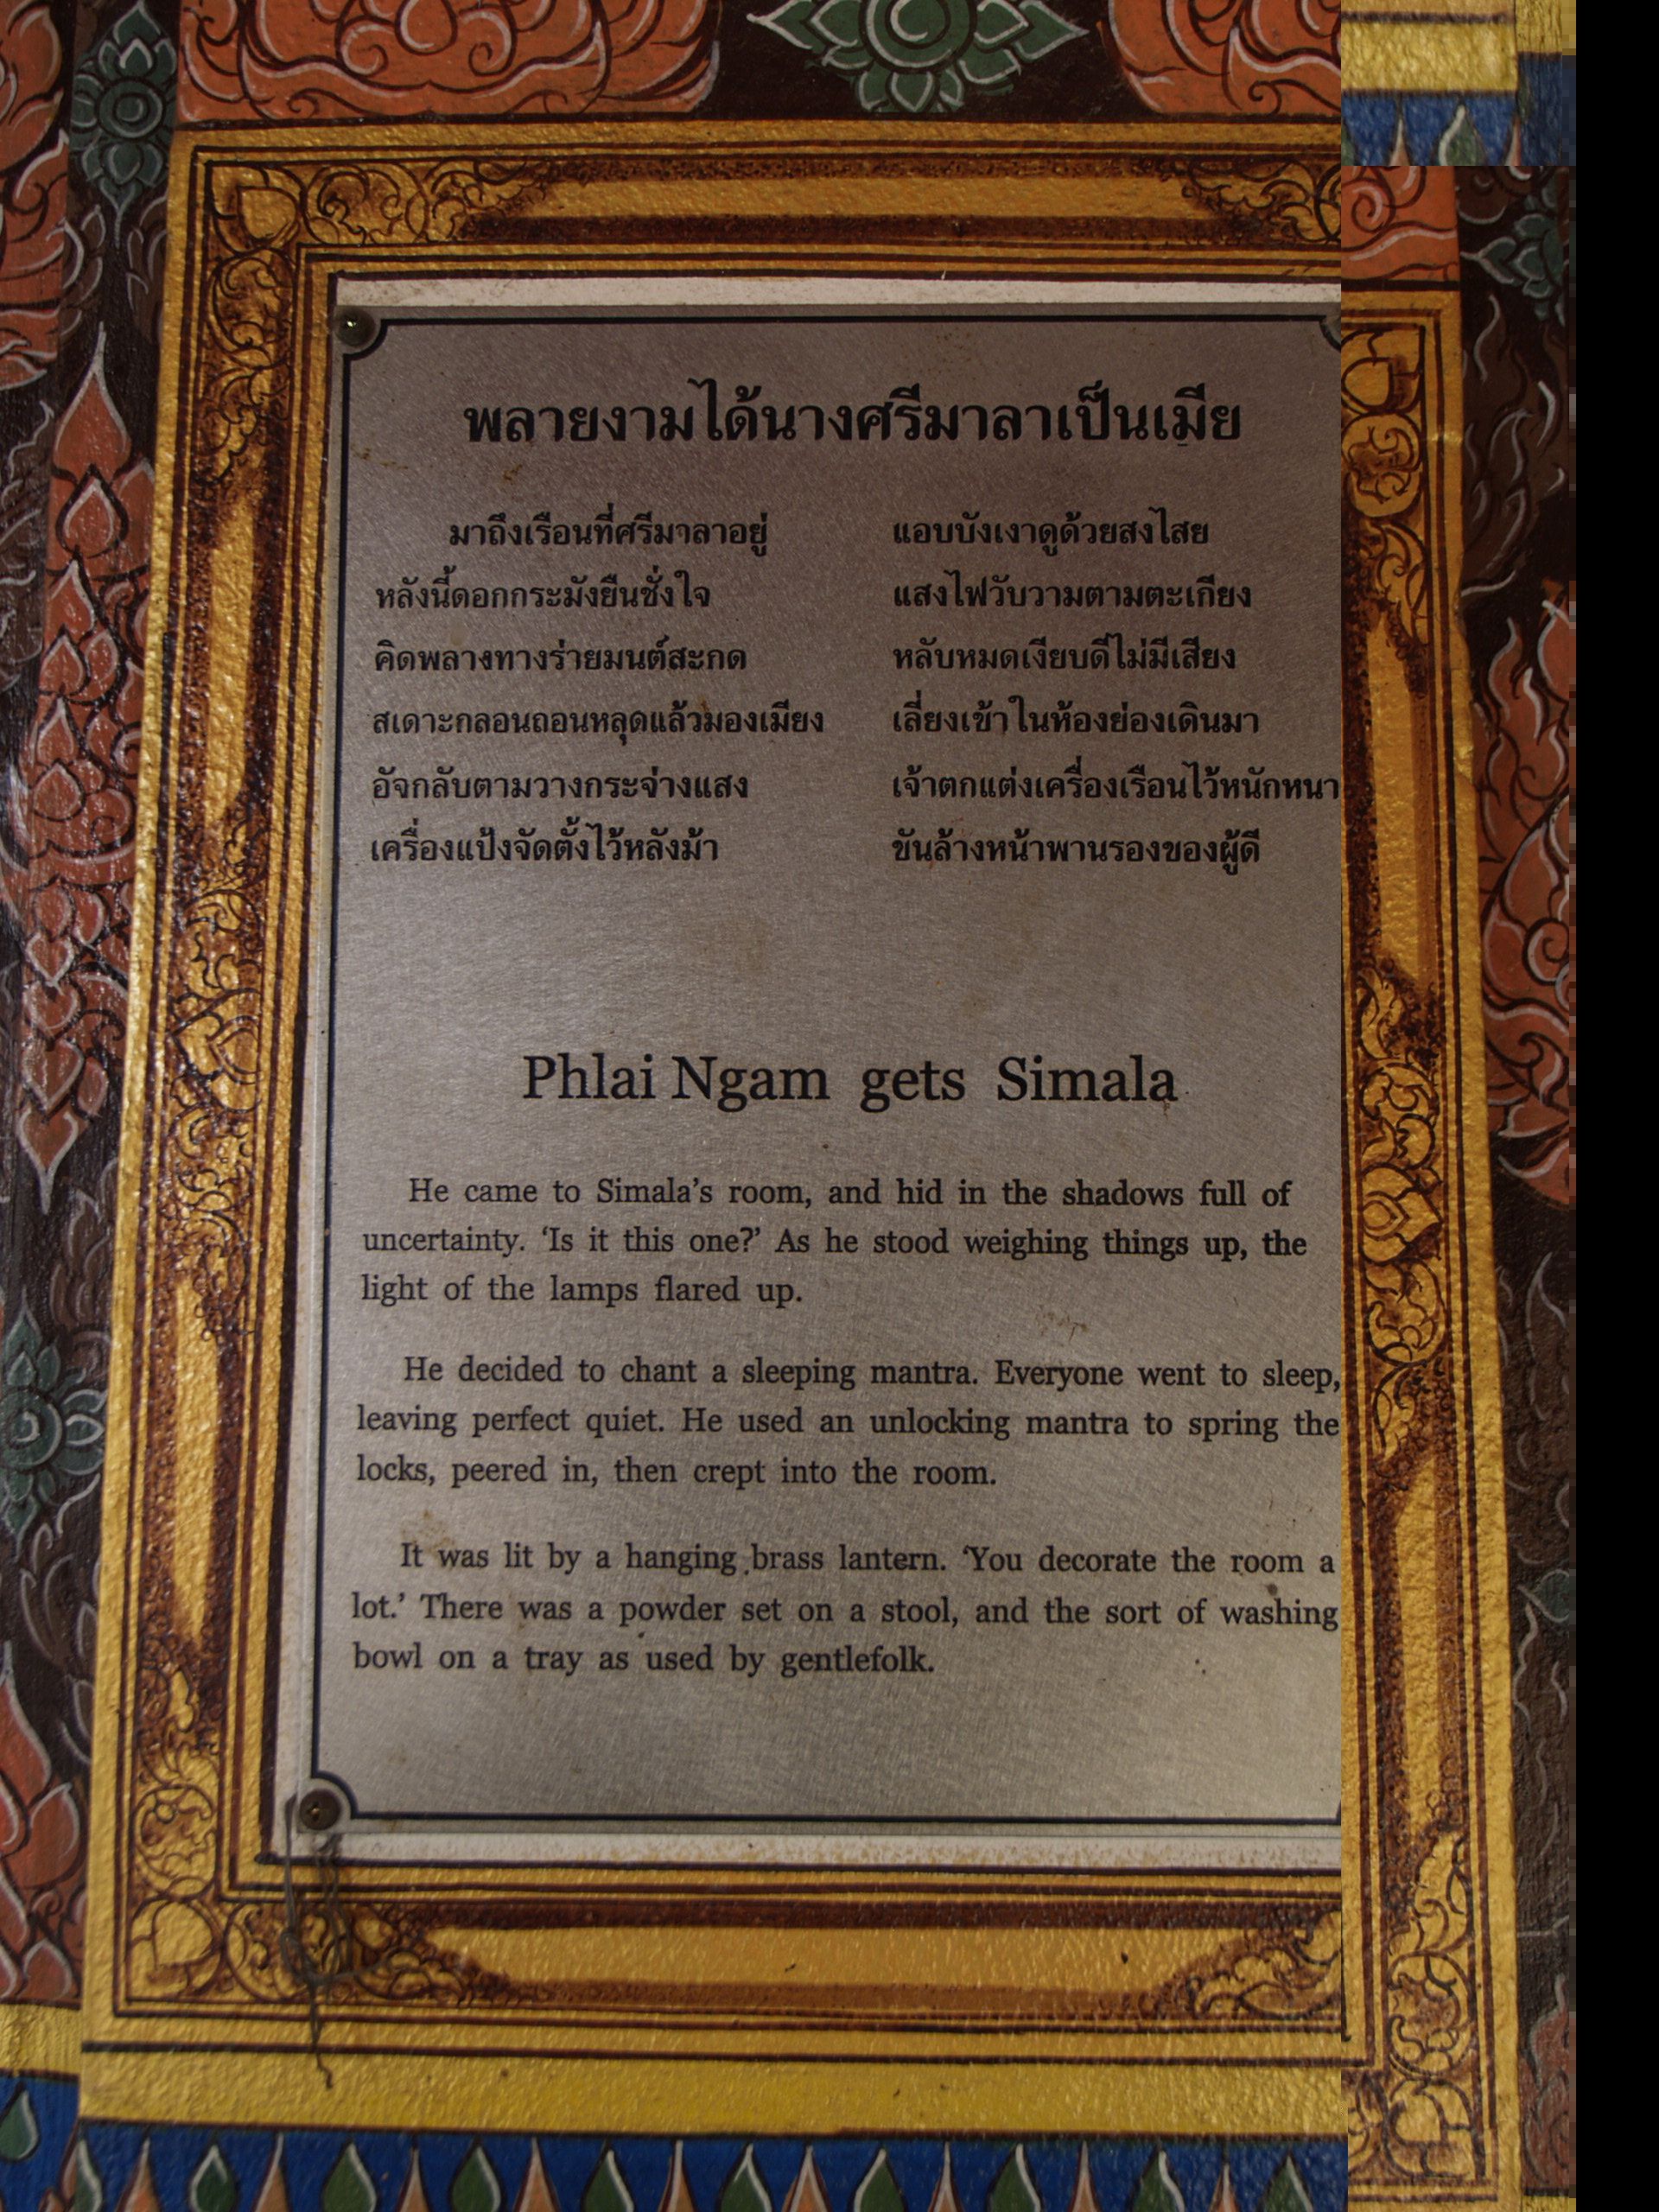 พลายงามได้นางศรีมาลาเป็นเมีย
มาถึงเรือนที่ศรีมาลาอยู่ แอบบังเงาดูด้วยสงไสย
หลังนี้ดอกกระมังยืนชั่งใจ แสงไฟวับวามตามตะเกียง
คิดพลางทางร่ายมนต์สะกด หลับหมดเงียบดีไม่มีเสียง
สเดาะกลอนถอนหลุดแล้วมองเมียง เลี่ยงเข้าในห้องย่องเดินมา
อัจกลับตามวางกระจ่างแสง เจ้าตกแต่งเครื่องเรือนไว้หนักหนา
เครื่องแป้งจัดตั้งไว้หลังม้า ขันล้างหน้าพานรองของผู้ดี
Phlai Ngam gets Simala
He came to Simala’s room, and hid in the shadows full of
uncertainty. ‘Is it this one?’ As he stood weighing things up, the
light of the lamps flared up.
He decided to chant a sleeping mantra. Everyone went to sleep,
leaving perfect quiet. He used an unlocking mantra to spring the
locks, peered in, then crept into the room.
It was lit by a hanging brass lantern. ‘You decorate the room a
lot.’ There was a powder set on a stool, and the sort of washing
bowl on a tray as used by gentlefolk.